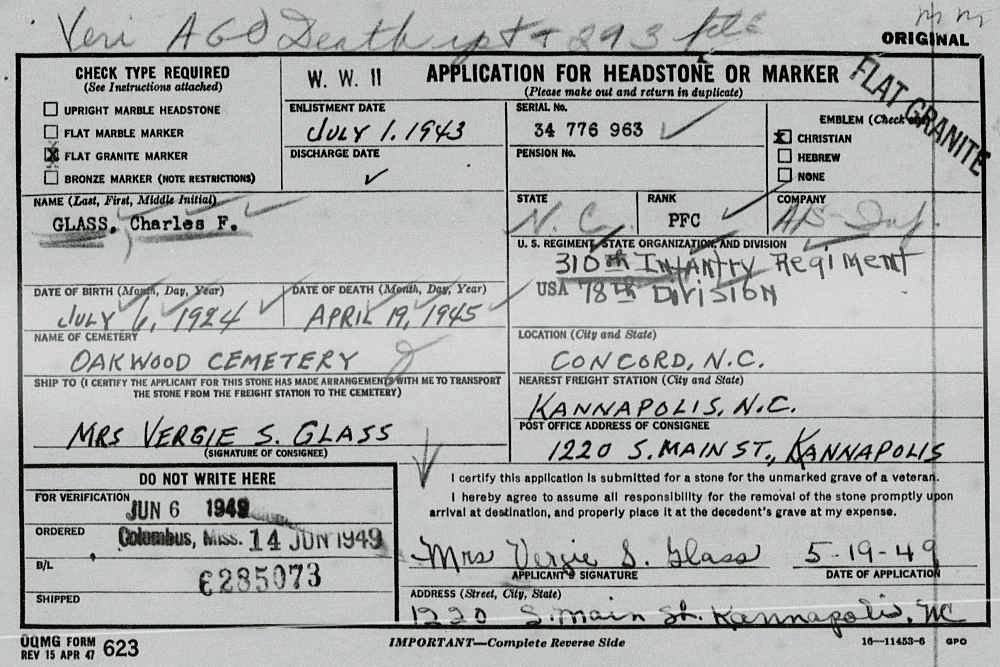 Veri AGO Death rpt + 293 file
ORIGINAL
CHECK TYPE REQUIRED
(See Instructions attached)
UPRIGHT MARBLE HEADSTONE
FLAT MARBLE MARKER
X FLAT GRANITE MARKER
BRONZE MARKER (NOTE RESTRICTIONS)
W. W. II
APPLICATION FOR HEADSTONE OR MARKER
(Please make out and return in duplicate)
FLAT GRANITE
ENLISTMENT DATE
JULY 1. 1943
DISCHARGE DATE
SERIAL No.
34 776 963
PENSION No.
EMBLEM (Check
X CHRISTIAN
HEBREW
NONE
NAME (Last, First, Middle Initial)
GLASS, Charles F.
STATE
N. C.
RANK
PFC
COMPANY
Inf.
U. S. REGIMENT, STATE ORGANIZATION, AND DIVISION
310th INfANtry RegiMent
USA 78th DIVISION
DATE OF BIRTH (Month, Day, Year)
JULY 6, 1924
DATE OF DEATH (Month, Day, Year)
APRIL 19, 1945
NAME OF CEMETERY
OAKWOOD CEMETERY
LOCATION (City and State)
CONCORD, N.C.
SHIP TO (I CERTIFY THE APPLICANT FOR THIS STONE HAS MADE ARRANGEMENTS WITH ME TO TRANSPORT
THE STONE FROM THE FREIGHT STATION TO THE CEMETERY)
MRS VERGIE S. GLASS
(SIGNATURE OF CONSIGNEE)
NEAREST FREIGHT STATION (City and State)
KANNAPOLIS, N.C.
POST OFFICE ADDRESS OF CONSIGNEE
1220 S. MAIN ST., KANNAPOLIS
DO NOT WRITE HERE
FOR VERIFICATION
JUN 6 1949
ORDERED
Columbus, Miss. 14 JUN 1949
B/L
6285073
SHIPPED
I certify this application is submitted for a stone for the unmarked grave of a veteran.
I hereby agree to assume all responsibility for the removal of the stone promptly upon
arrival at destination, and properly place it at the decedent's grave at my expense.
Mrs Vergie S. Glass
5-19-49
APPLICANT'S SIGNATURE
DATE OF APPLICATION
ADDRESS (Street, City, State)
1220 S. Main St. Kannapolis, NC
OQMG FORM 623
REV 15 APR 47
IMPORTANT—Complete Reverse Side
16—11453-6 GPO